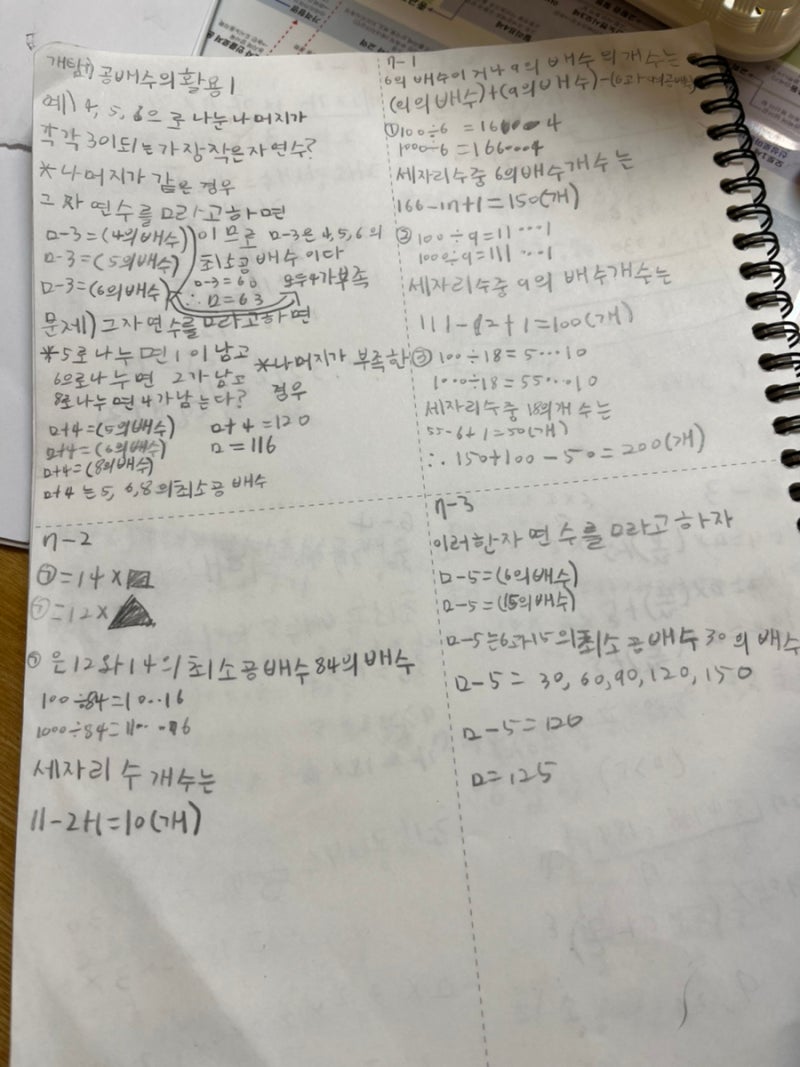 개탐) 공배수의활용1
예) 4, 5, 6으로 나눈나머지가
각각 3이되는가장작은자연수?
*나머지가 같은 경우
그 자연수를 ㅁ라고하면
ㅁ-3=(4의배수) 이므로 ㅁ-3은 4,5,6의
ㅁ-3=(5의배수) 최소공배수이다
ㅁ-3=(6의배수) ㅁ-3=60 모두4가부족
∴ ㅁ=63
문제) 그자연수를ㅁ라고하면
*5로나누면 1이남고 *나머지가 부족한
6으로나누면 2가남고 경우
8로나누면4가남는다?
ㅁ+4=(5의배수) ㅁ+4=120
ㅁ+4=(6의배수) ㅁ=116
ㅁ+4=(8의배수)
ㅁ+4는 5, 6,8의최소공배수
7-1
6의 배수이거나 9의 배수의개수는
(6의배수)+(9의배수)-(6과 9의공배수)
①100÷6 =16•••4
1000÷6=166•••4
세자리수중 6의배수개수는
166-17+1=150(개)
② 100÷9=11•••1
1000÷9=111•••1
세자리수중 9의 배수개수는
111-12+1=100(개)
③ 100÷18=5•••10
1000÷18=55•••10
세자리수중 18의개수는
55-6+1=50(개)
∴150+100-50=200(개)
7-2
㉠=14×■
㉠=12×▲
㉠은12와14의최소공배수84의배수
100÷84=1•••16
1000÷84=11•••76
세자리 수 개수는
11-2+1=10(개)
7-3
이러한자연수를ㅁ라고하자
ㅁ-5=(6의배수)
ㅁ-5=(15의배수)
ㅁ-5는6과15의최소공배수30의배수
ㅁ-5= 30, 60, 90, 120, 150
ㅁ-5=120
ㅁ=125